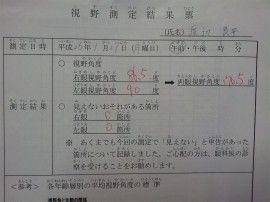 視野測定結果票
(氏名)
測定日時 平成 年 月 日(月曜日) (午前・午後 時 分
○ 視野角度
右眼視野角度 度 → 両眼視野角度 度
左眼視野角度 90 度
測定結果
○ 見えないおそれがある箇所
右眼 0 箇所
左眼 0 箇所
※ あくまでも今回の測定で「見えない」と申告があった
箇所について記録しました。ご心配の方は、眼科医の診
察を受けることをお勧めします。
<参考> 各年齢層別の平均視野角度の標準